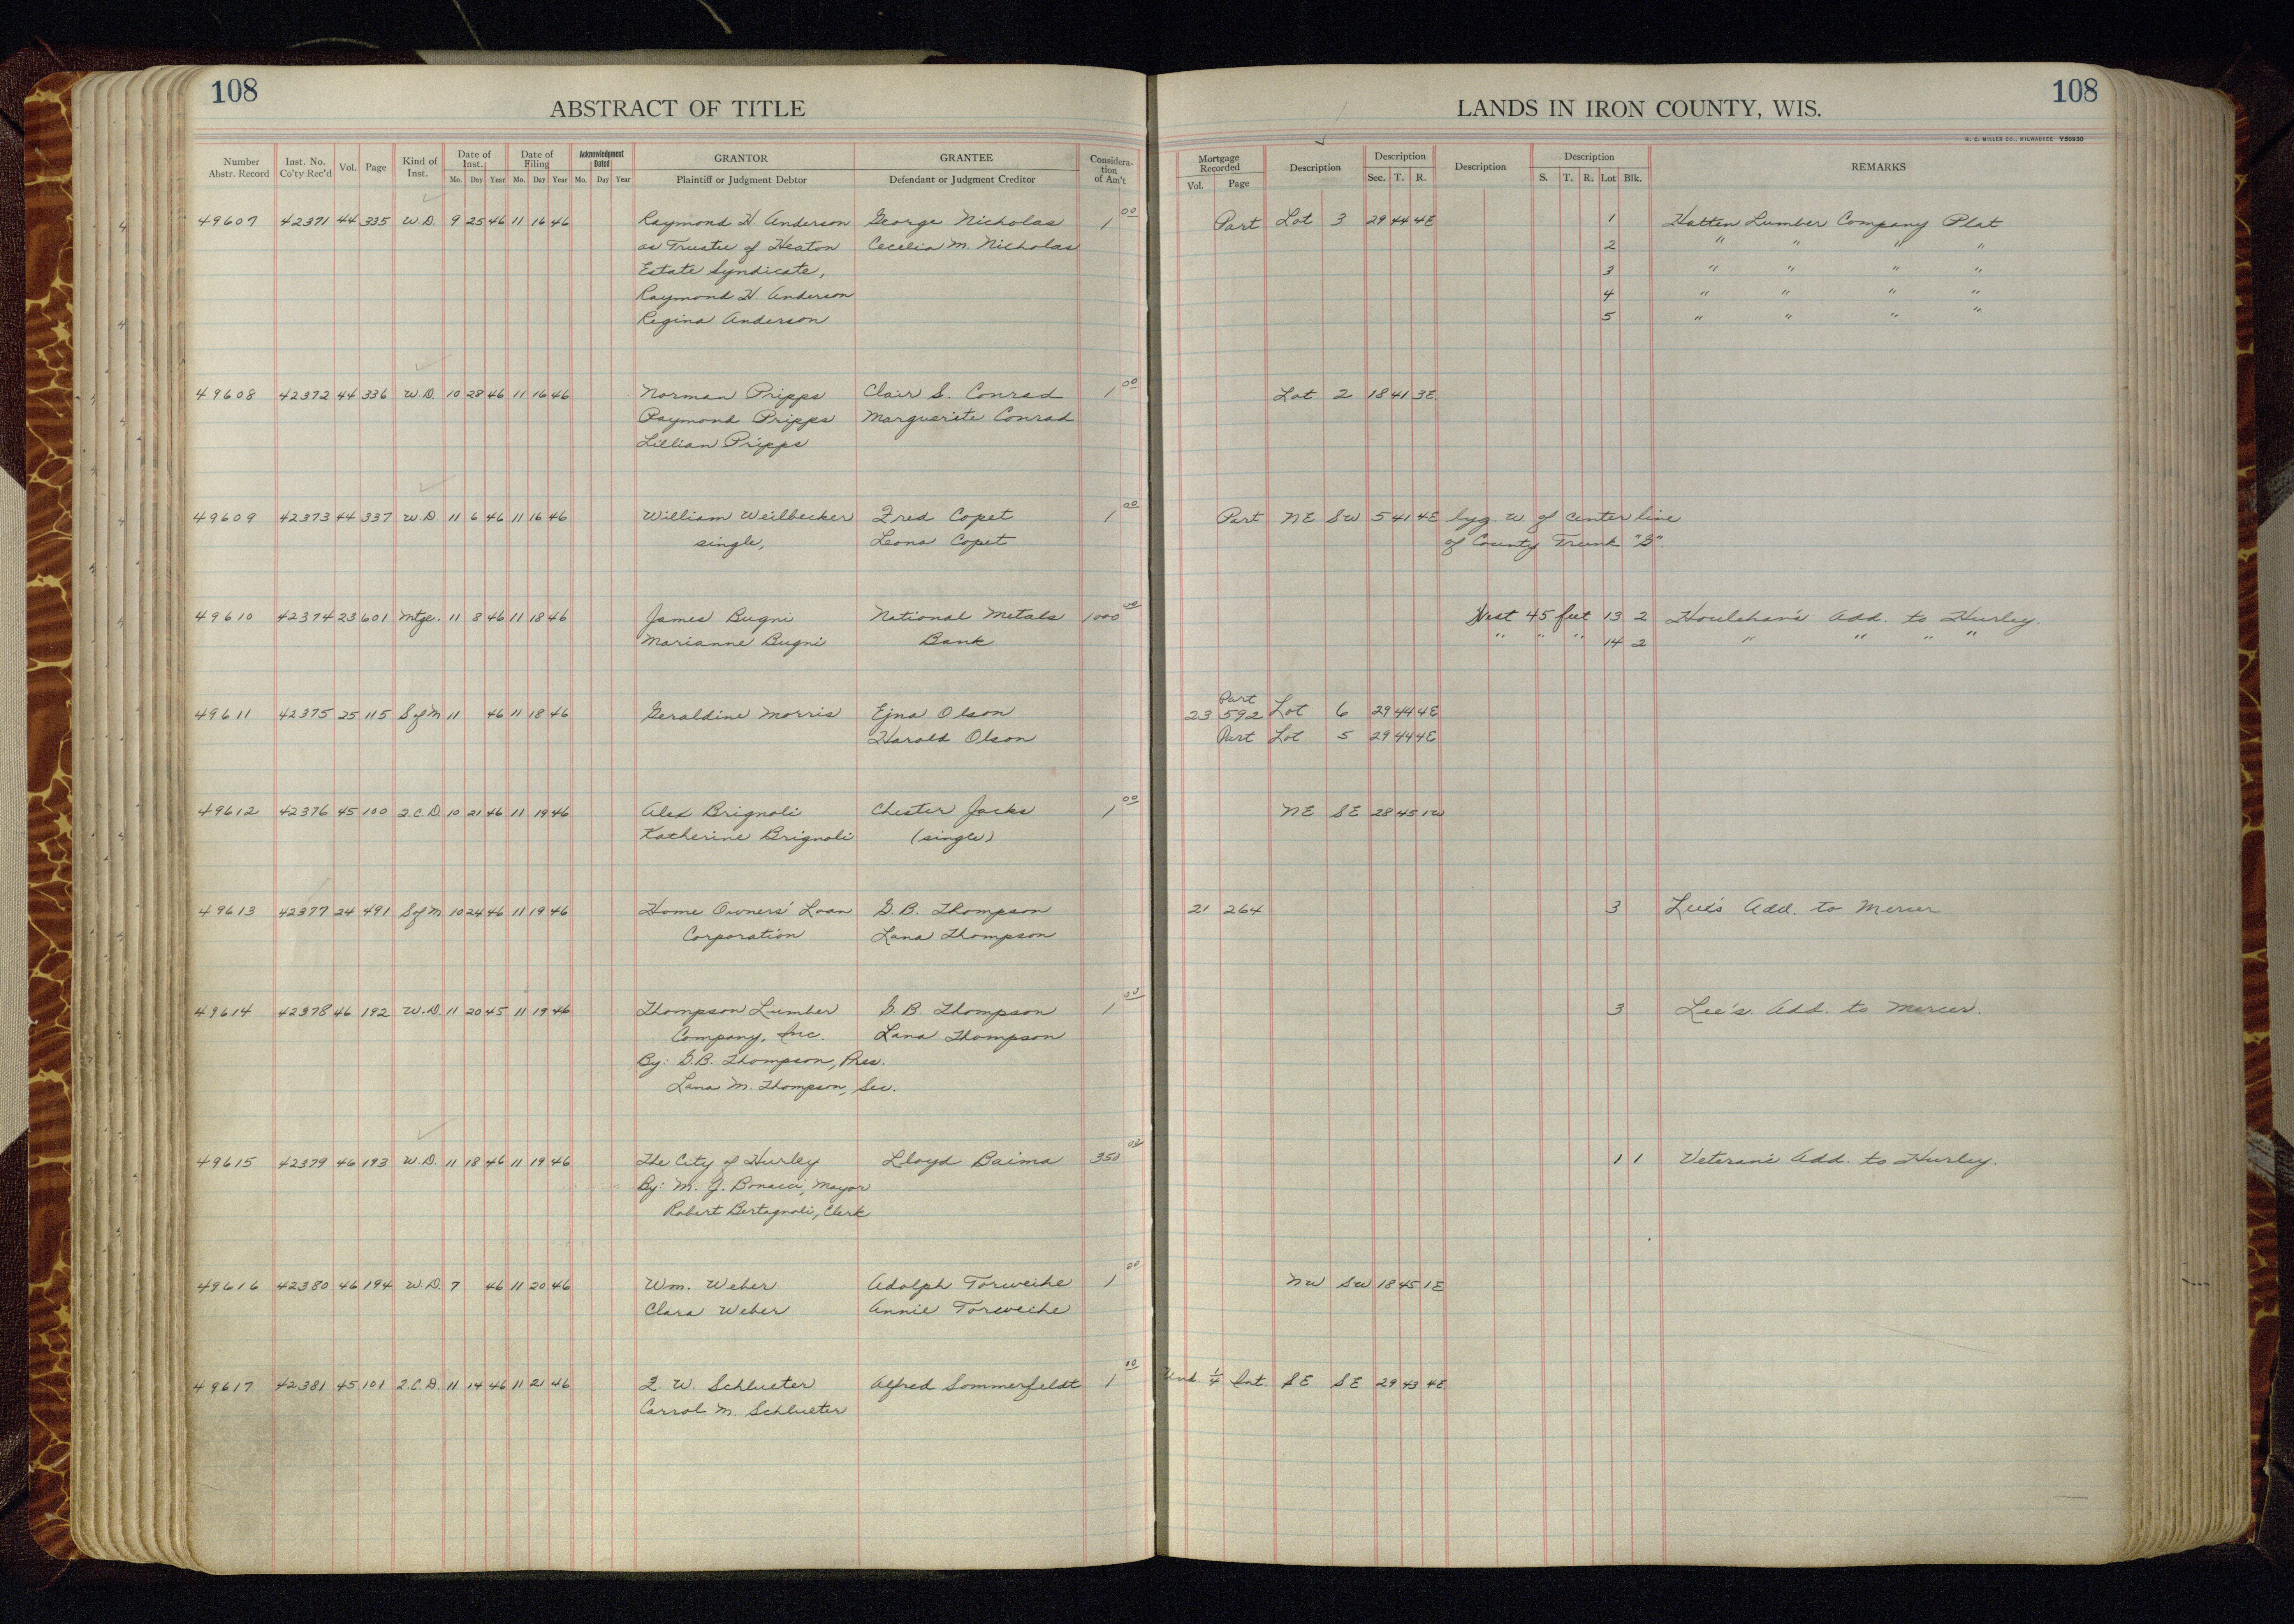 108
ABSTRACT OF TITLE
LANDS IN IRON COUNTY, WIS.
108
H. C. MILLER CO., MILWAUKEE Y50930
Number Abstr. Record | Inst. No. Co'ty Rec'd | Vol. | Page | Kind of Inst. | Date of Inst. Mo. Day Year | Date of Filing Mo. Day Year | Acknowledgment Dated Mo. Day Year | GRANTOR Plaintiff or Judgment Debtor | GRANTEE Defendant or Judgment Creditor | Consideration of Am't | Mortgage Recorded Vol. Page | Description | Description Sec. T. R. | Description | Description S. T. R. Lot Blk. | REMARKS
49607 42371 44 335 W.D. 9 25 46 11 16 46 Raymond H Anderson George Nicholas 1 00 Part Lot 3 29 44 4E 1 Hatten Lumber Company Plat
as Trustee of Heaton Cecelia M. Nicholas 2 " " " "
Estate Syndicate, 3 " " " "
Raymond H. Anderson 4 " " " "
Regina Anderson 5 " " " "
49608 42372 44 336 W.D. 10 28 46 11 16 46 Norman Pripps Clair S. Conrad 1 00 Lot 2 18 41 3E
Raymond Pripps Marguerite Conrad
Lillian Pripps
49609 42373 44 337 W.D. 11 6 46 11 16 46 William Weilbecker Fred Copet 1 00 Part NE SW 5 41 4E lyg. W. of center line
single, Leona Copet of County Trunk "G".
49610 42374 23 601 Mtge. 11 8 46 11 18 46 James Bugni National Metals 1000 00 West 45 feet 13 2 Houlehan's Add. to Hurley.
Marianne Bugni Bank " " " 14 2 " " " "
Part
49611 42375 25 115 S of M 11 46 11 18 46 Geraldine Morris Ejna Olson 23 592 Lot 6 29 44 4E
Harold Olson Part Lot 5 29 44 4E
49612 42376 45 100 Q.C.D. 10 21 46 11 19 46 Alex Brignoli Chester Jacks 1 00 NE SE 28 45 1W
Katherine Brignoli (single)
49613 42377 24 491 S of M 10 24 46 11 19 46 Home Owners' Loan G.B. Thompson 21 264 3 Lee's Add. to Mercer
Corporation Lana Thompson
49614 42378 46 192 W.D. 11 20 45 11 19 46 Thompson Lumber G.B. Thompson 1 00 3 Lee's. Add. to Mercer.
Company, Inc. Lana Thompson
By: G.B. Thompson, Pres.
Lana M. Thompson, Sec.
49615 42379 46 193 W.D. 11 18 46 11 19 46 The City of Hurley Lloyd Baima 350 00 1 1 Veteran's Add. to Hurley.
By: M. J. Bonacci, Mayor
Robert Bertagnoli, Clerk
49616 42380 46 194 W.D. 7 46 11 20 46 Wm. Weber Adolph Torweihe 1 00 NW SW 18 45 1E
Clara Weber Annie Torweihe
49617 42381 45 101 Q.C.D. 11 14 46 11 21 46 F. W. Schlueter Alfred Sommerfeldt 1 00 Und. 1/4 Int. SE SE 29 43 4E
Carrol M. Schlueter